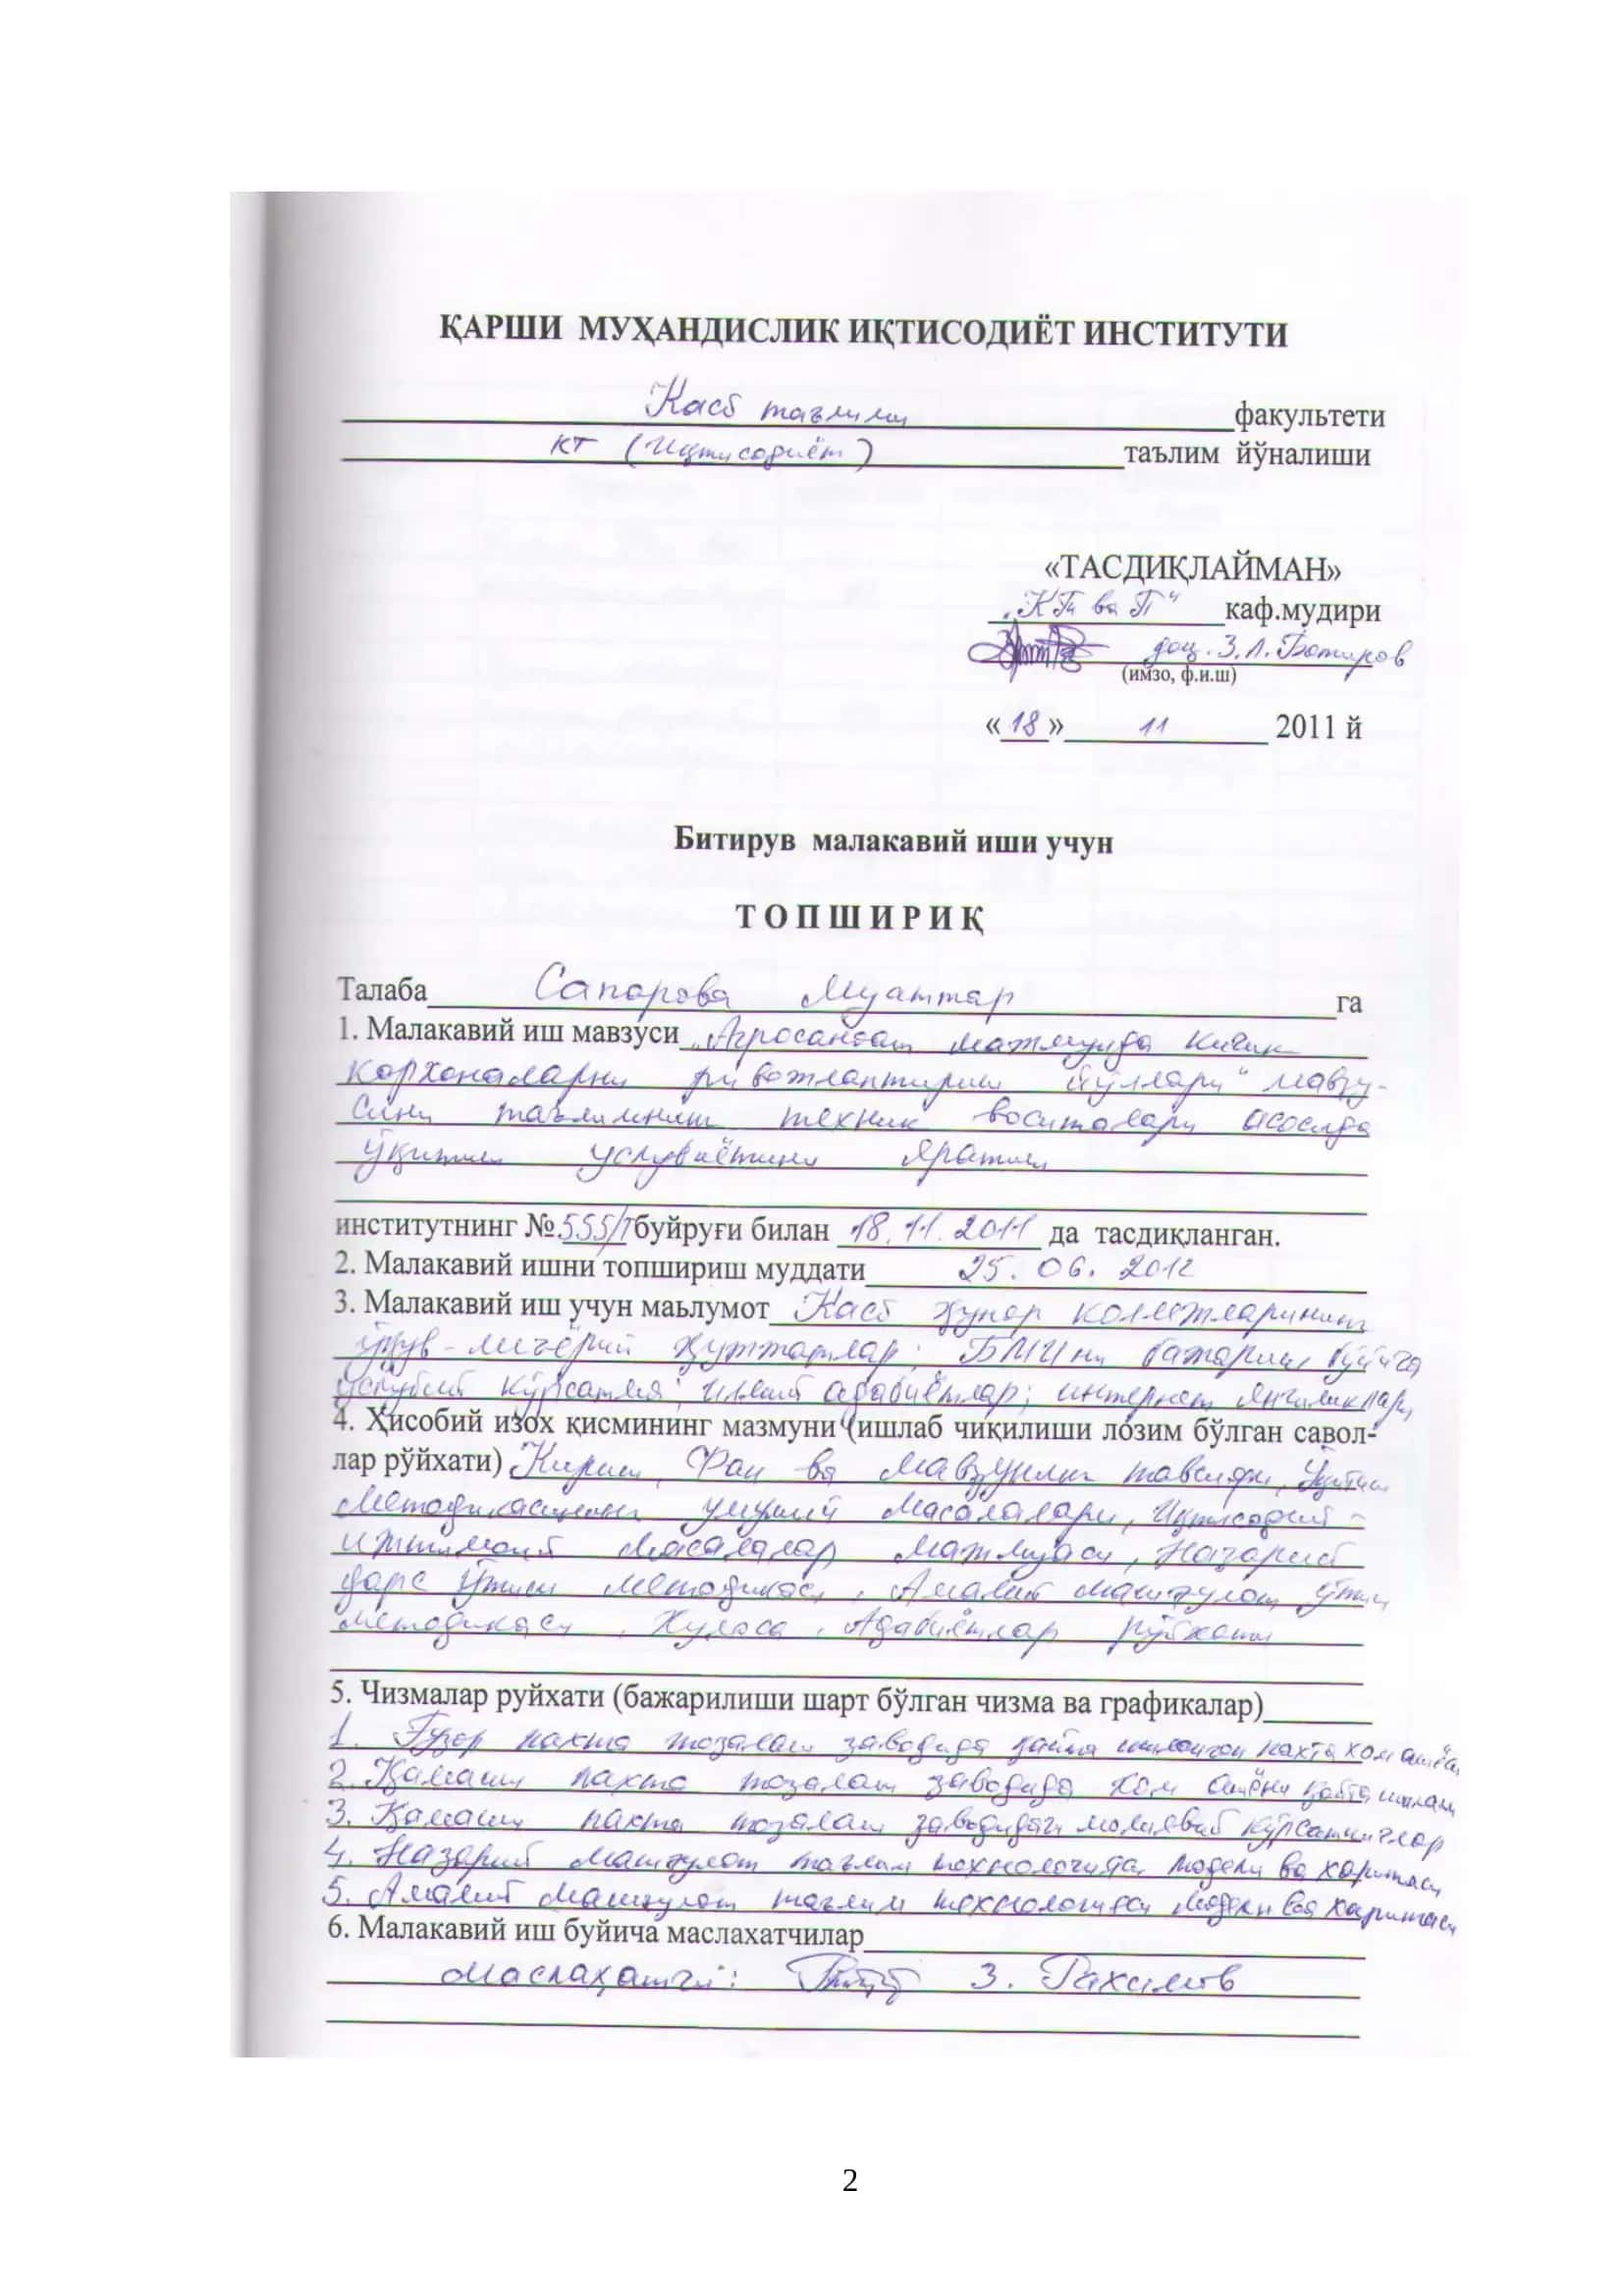 ҚАРШИ МУҲАНДИСЛИК ИҚТИСОДИЁТ ИНСТИТУТИ
Касб таълими факультети
КТ (Иқтисодиёт) таълим йўналиши
«ТАСДИҚЛАЙМАН»
"КТ ва П" каф.мудири
доц. З.Л. Ботиров
(имзо, ф.и.ш)
«18» 11 2011 й
Битирув малакавий иши учун
Т О П Ш И Р И Қ
Талаба Сапарова Муаттар га
1. Малакавий иш мавзуси „Агросаноат мажмуида кичик
корхоналарни ривожлантириш йўллари" мавзу-
сини таълимнинг техник воситалари асосида
ўқитиш услубиётини яратиш
институтнинг №555/Т буйруғи билан 18.11.2011 да тасдиқланган.
2. Малакавий ишни топшириш муддати 25.06.2012
3. Малакавий иш учун маьлумот Касб ҳунар коллежларининг
ўқув-меъёрий ҳужжатлар; БМИни бажариш бўйича
услубий кўрсатма; илмий адабиётлар; интернет янгиликлари
4. Ҳисобий изох қисмининг мазмуни (ишлаб чиқилиши лозим бўлган савол-
лар рўйхати) Кириш, Фан ва мавзунинг тавсифи, Ўқитиш
методикасининг умумий масалалари, Иқтисодий-
ижтимоий масалалар мажмуаси, Назарий
дарс ўтиш методикаси, Амалий машғулот ўтиш
методикаси, Хулоса, Адабиётлар рўйхати
5. Чизмалар руйхати (бажарилиши шарт бўлган чизма ва графикалар)
1. Ғузор пахта тозалаш заводида қайта ишланган пахта хом ашёси
2. Қамаши пахта тозалаш заводида хом ашёни қайта ишлаш
3. Қамаши пахта тозалаш заводидаги молиявий кўрсаткичлар
4. Назарий машғулот таълим технологияда модели ва харитаси
5. Амалий машғулот таълим технологияси модели ва харитаси
6. Малакавий иш буйича маслахатчилар
Маслаҳатчи: З. Рахимов
2